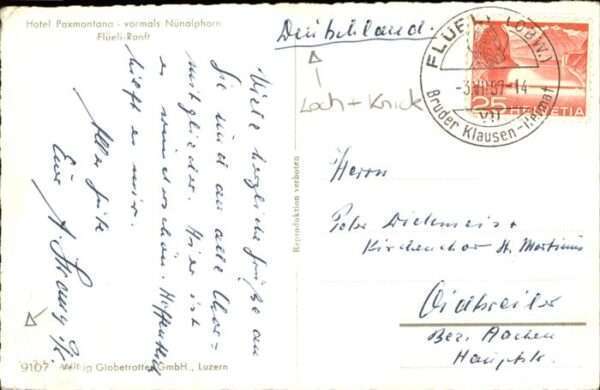 Hotel Paxmontana - vormals Nünalphorn
Flüeli-Ranft
Deutschland.
Loch + Knick
FLÜELI (OBW.)
-3.VII.59-14
VII
Bruder Klausen-Heimat
25 HELVETIA
Viele herzliche Grüße an
Sie und an alle Chor=
mitglieder. Hier ist
es wunderschön. Hoffentlich
hilft es mir.
Alles Gute
Euer
Reproduktion verboten
Herrn
Peter
Kirchenchor St. Martinus
Oidtweiler
Bez. Aachen
Hauptstr.
9107 Globetrotter GmbH., Luzern